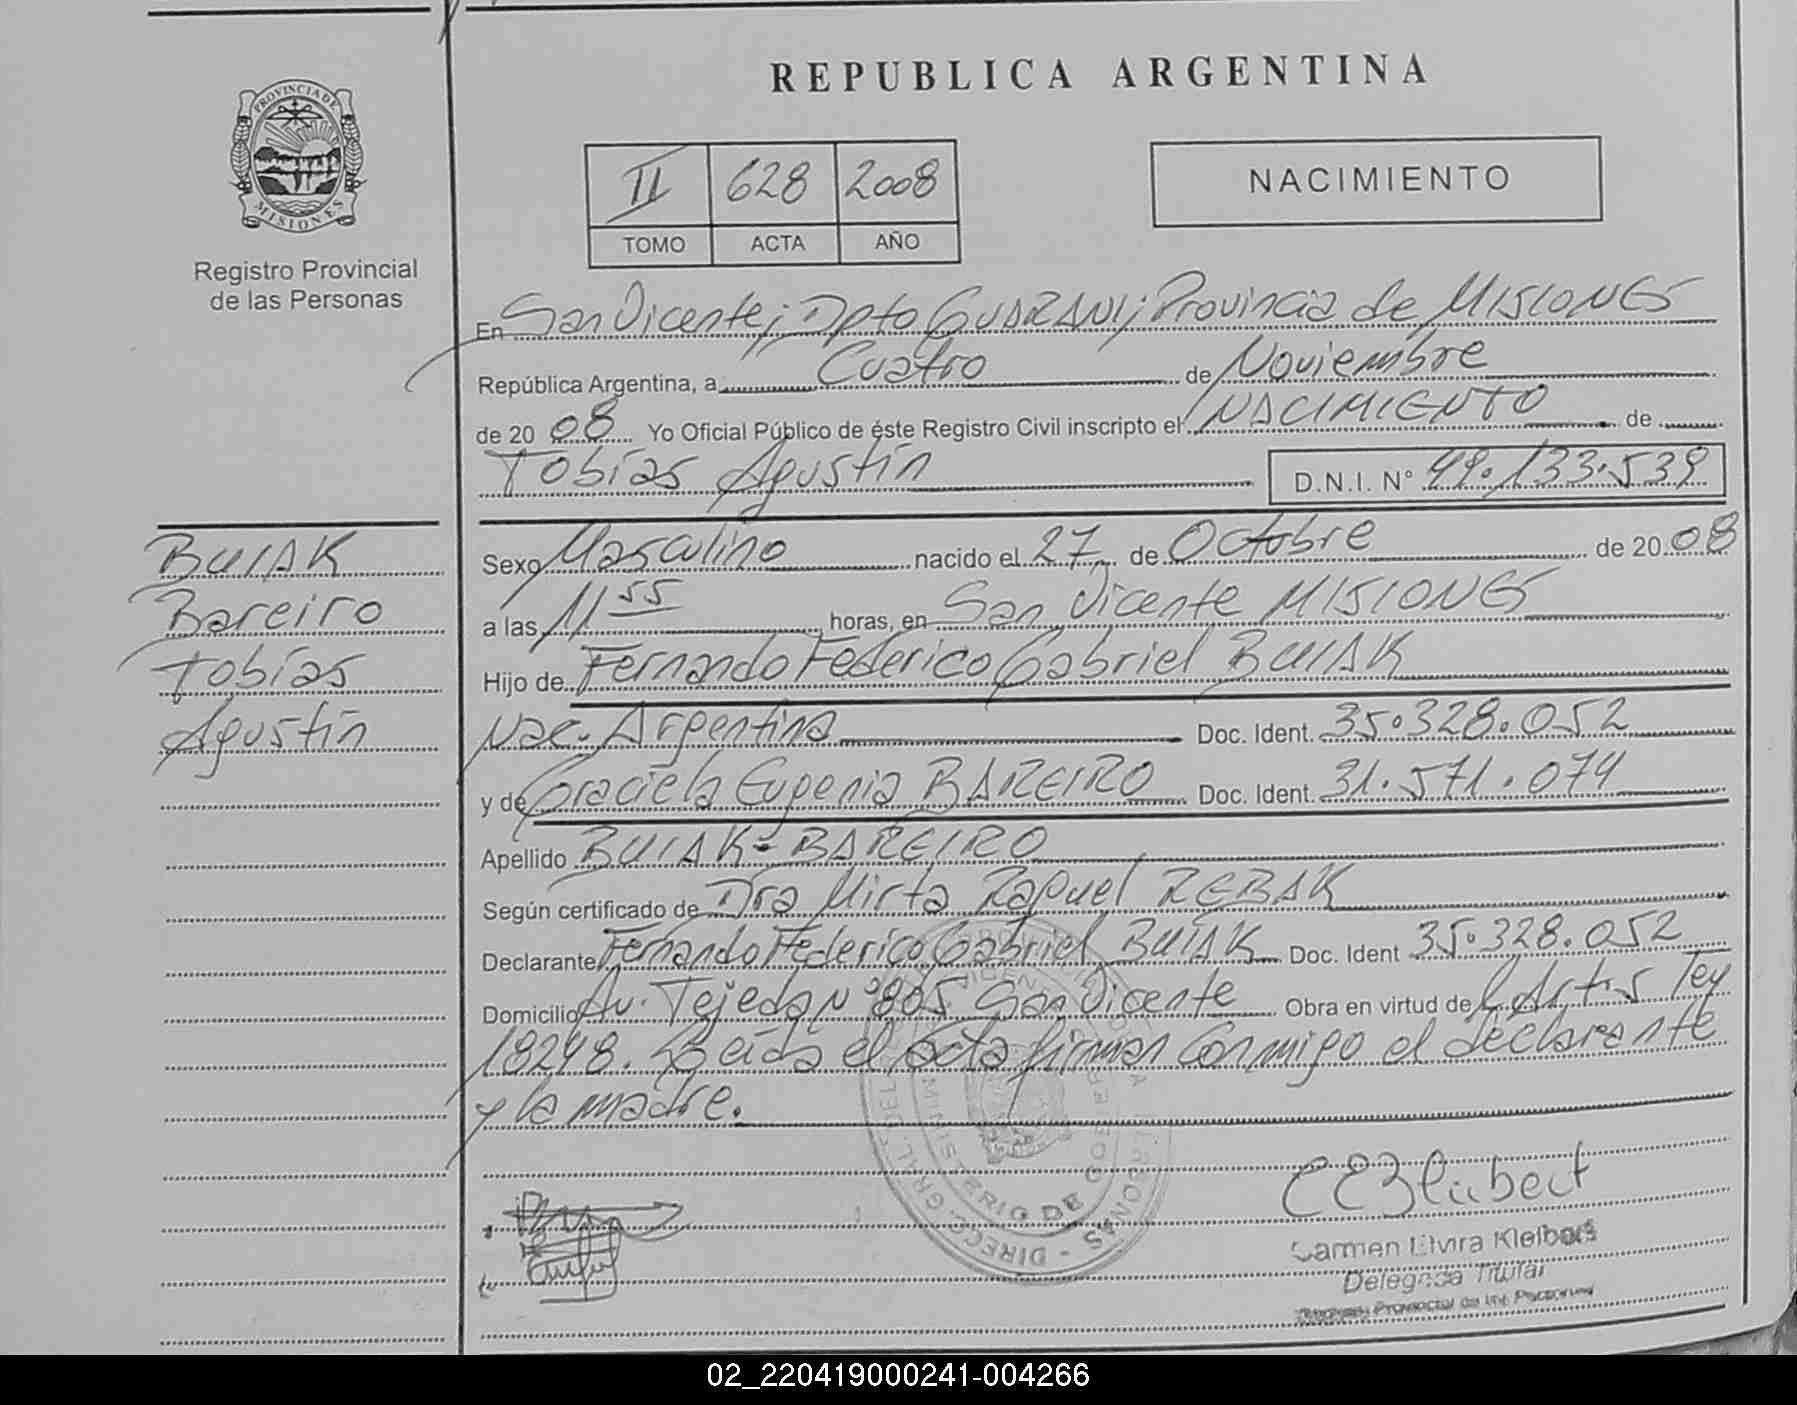 REPUBLICA ARGENTINA
PROVINCIA DE
MISIONES
Registro Provincial
de las Personas
II 628 2008
TOMO ACTA AÑO
NACIMIENTO
En San Vicente; Dpto GUARANI; Provincia de MISIONES
República Argentina, a Cuatro de Noviembre
de 2008 Yo Oficial Público de éste Registro Civil inscripto el NACIMIENTO de
Tobías Agustín D.N.I. N° 49.133.539
BUIAK
Bareiro
Tobías
Agustín
Sexo Masculino nacido el 27 de Octubre de 2008
a las 11 55 horas, en San Vicente MISIONES
Hijo de Fernando Federico Gabriel BUIAK
Nac. Argentina Doc. Ident. 35.328.052
y de Graciela Eugenia BAREIRO Doc. Ident. 31.571.074
Apellido BUIAK-BAREIRO
Según certificado de Dra Mirta Raquel REBAK
Declarante Fernando Federico Gabriel BUIAK Doc. Ident 35.328.052
Domicilio Av. Tejeda N°805 San Vicente Obra en virtud de Ley
18248. Leída el acta firman conmigo el declarante
y la madre.
MINISTERIO DE GOBIERNO
Carmen Elvira
Delegada Titular
Registro Provincial de las Personas
02_220419000241-004266